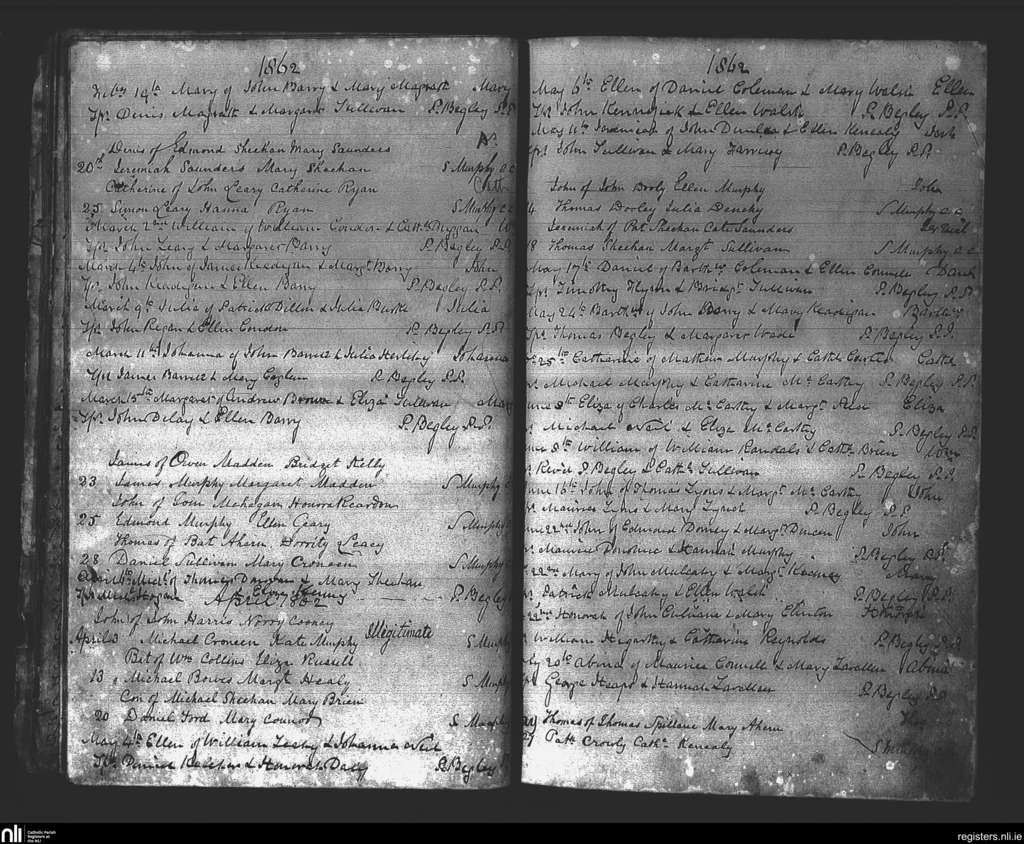 1862
Feby 19th Mary of John Barry & Mary Magrath Mary
Sps Denis Magrath & Margaret Sullivan P. Begley P.P.
Denis of Edmond Sheehan Mary Saunders
20th Jeremiah Saunders Mary Sheehan S Murphy C C
Catherine of John Leary Catherine Ryan Cath
25 Simon Leary Hanna Ryan S Murphy C C
March 2nd William of William Condon & Cath Duggan W
Sps John Leary & Margaret Barry P. Begley P.P.
March 4th John of James Keadigan & Margt Barry John
Sps John Keadigan & Ellen Barry P. Begley P.P.
March 9th Julia of Patrick Dillon & Julia Burke Julia
Sps John Regan & Ellen Condon P. Begley P.P.
March 11th Johanna of John Barnett & Julia Herlihy Johanna
Sps James Barnett & Mary P. Begley P.P.
March 15th Margaret of Andrew Brown & Eliza Sullivan Mar
Sps John Delay & Ellen Barry P. Begley P.P.
James of Owen Madden Bridget Kelly
23 James Murphy Margaret Madden S Murphy C
John of Con Mehegan Honora Reardon
25 Edmond Murphy Ellen Geary S Murphy
Thomas of Bat Ahern Dorrity Leacy
28 Daniel Sullivan Mary Croneen S Murphy
April Michl of Thomas & Mary Sheehan
Sps Michl Hogan Eliza Henny P. Begley
April 1862
John of John Harris Norry Cooney
Illegitimate
April 3 Michael Croneen Kate Murphy S Murphy
Bet of Wm Collins Eliza Russell
13 Michael Bowes Margt Healy S Murphy
Con of Michael Sheehan Mary Brien
20 Daniel Ford Mary Connor S Murphy
May 4th Ellen of William Leahy & Johanna Neil
Sps Daniel Kelleher & Honorah Daly P. Begley
1862
May 6th Ellen of Daniel Coleman & Mary Walsh Ellen
Sps John Kennefick & Ellen Walsh P. Begley P.P.
May 11th Jeremiah of John Dunlea & Ellen Kenealy Jerh
Sps John Sullivan & Mary P. Begley P.P.
John of John Dooly Ellen Murphy John
14 Thomas Dooley Julia Denehy S Murphy C C
Jeremiah of Pat Sheehan Cate Saunders
18 Thomas Sheehan Margt Sullivan S Murphy C C
May 17th Daniel of Barthw Coleman & Ellen Connell Danl
Sps Timothy Flynn & Bridgt Sullivan P. Begley P.P.
May 24th Barthw of John Barry & Mary Keadigan Barthw
Sps Thomas Begley & Margaret Wade P. Begley P.P.
25th Catharine of Mathew Murphy & Cath Cath
Michael Murphy & Catharine McCarthy P. Begley P.P.
8th Eliza of Charles McCarthy & Margt Eliza
Michael Neil & Eliza McCarthy P. Begley P.P.
8th William of William Randals & Cath Brien Wm
Revd P. Begley & Cath Sullivan P. Begley P.P.
15th John of Thomas Lyons & Margt McCarthy John
Maurice Lyons & Mary Lynch P. Begley P.P.
22nd John of Edmond & Margt Dineen John
Maurice Donohue & Hannah Murphy P. Begley P.P.
22nd Mary of John Mulcahy & Margt Mary
Patrick Mulcahy & Ellen Walsh P. Begley P.P.
Honorah of John & Mary Clinton Honorah
William Hegarthy & Catharine Reynolds P. Begley P.P.
20th Abina of Maurice Connell & Mary Lavallen Abina
George Heaps & Hannah Lavallen P. Begley P.P.
Thomas of Thomas Spillane Mary Ahern
27 Patk Crowly Cath Kenealy S Murphy
nli
Catholic Parish
Registers at
the NLI
registers.nli.ie